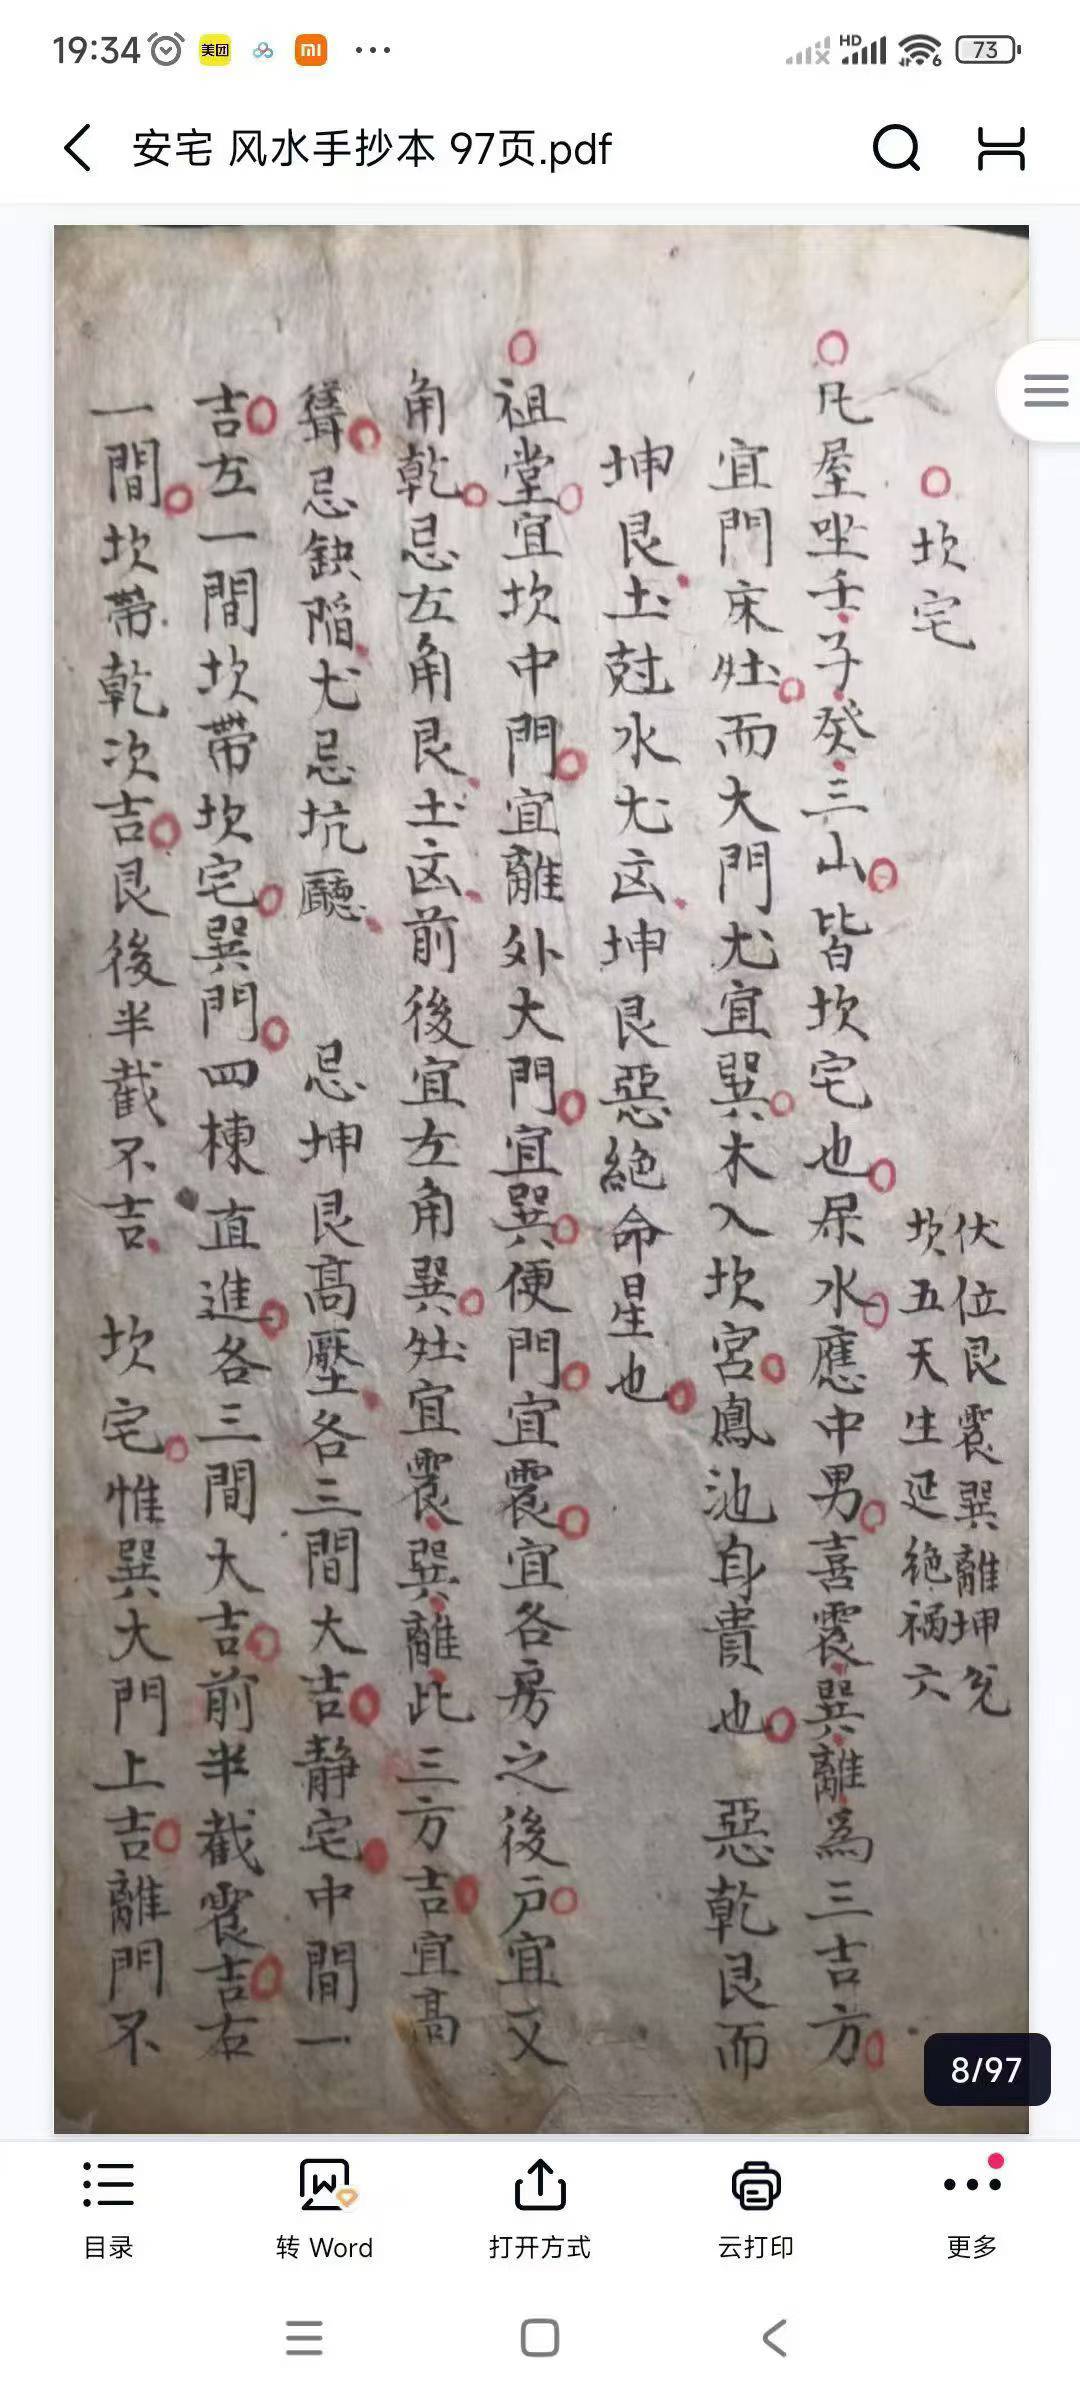 19:34
美团
mi
HD
6
73
安宅 风水手抄本 97页.pdf
坎宅
伏位艮震巽離坤兌
坎五天生延絶禍六
凡屋坐壬子癸三山皆坎宅也屎水應中男喜震巽離為三吉方
宜門床灶而大門尤宜巽木入坎宮鳳池身貴也 惡乾艮而
坤艮土尅水尤凶坤艮惡絶命星也
祖堂宜坎中門宜離外大門宜巽便門宜震宜各房之後戸宜又
角乾忌左角艮土凶前後宜左角巽灶宜震巽離此三方吉宜高
聳忌缺陷尤忌坑廳 忌坤艮高壓各三間大吉静宅中間一
吉左一間坎帶坎宅巽門四棟直進各三間大吉前半截震吉右
一間坎帶乾次吉艮後半截不吉 坎宅惟巽大門上吉離門不
8/97
目录
转 Word
打开方式
云打印
更多